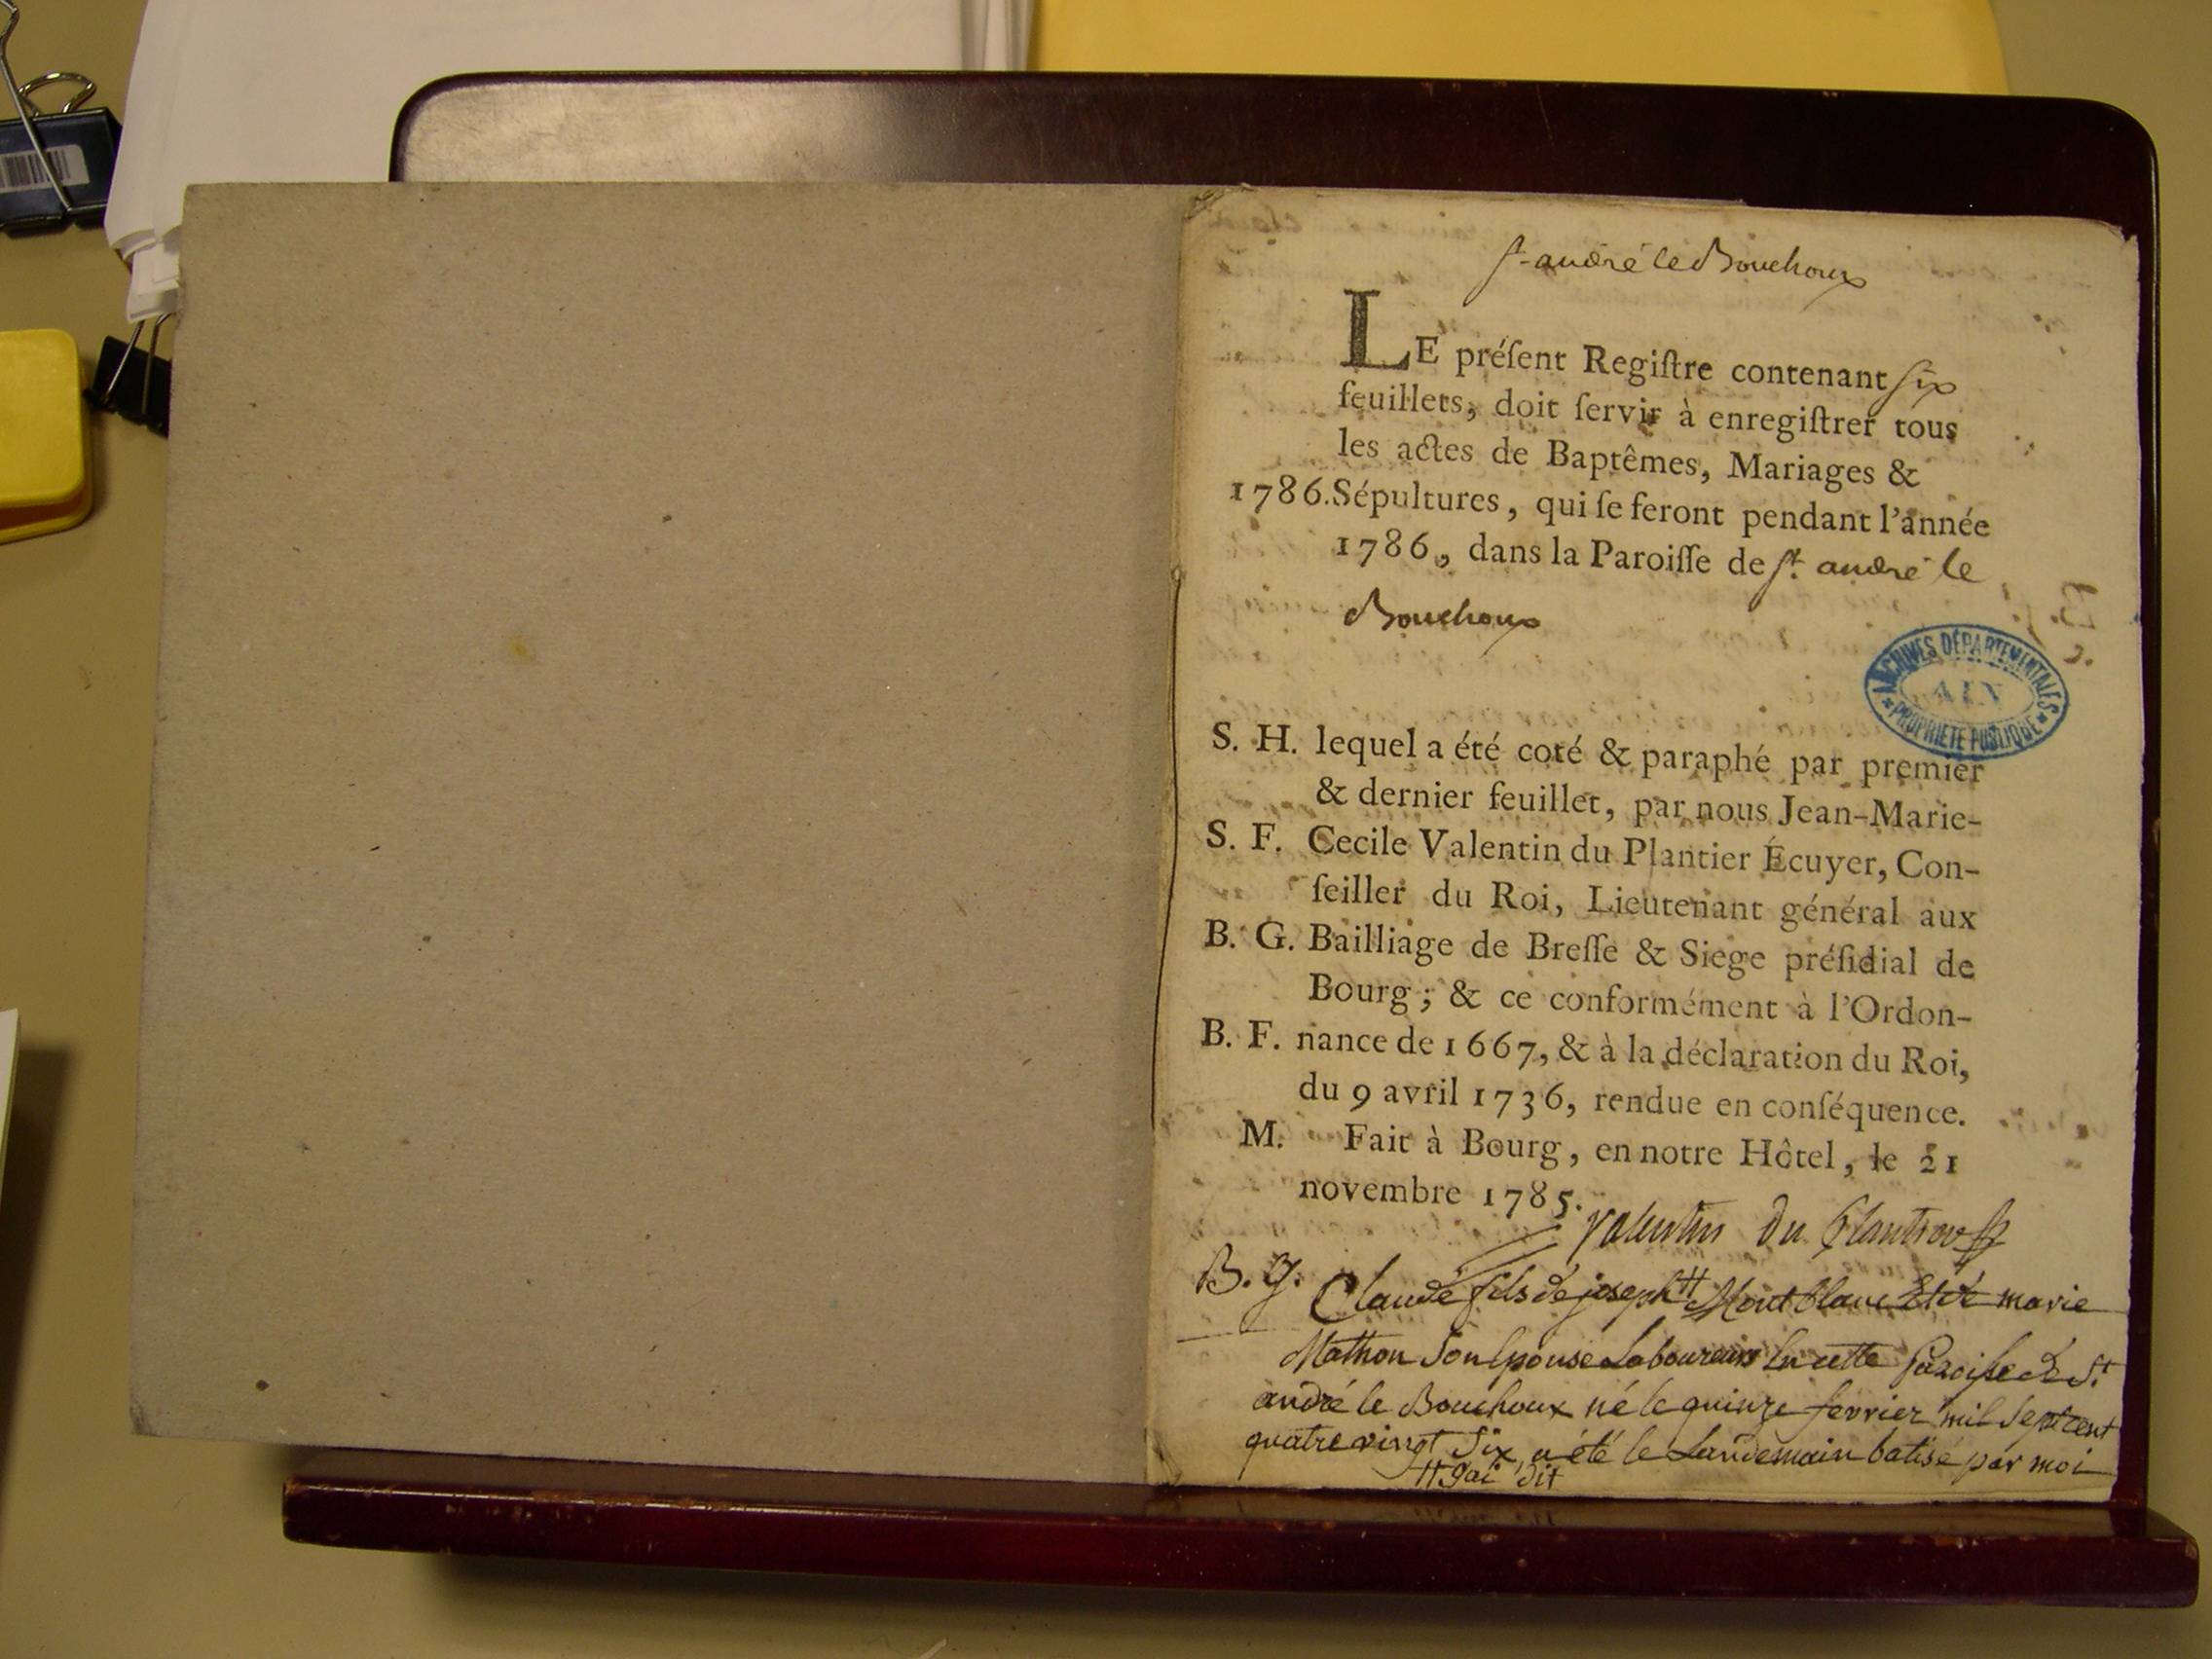 st andré le Bouchoux
LE préſent Regiſtre contenant six
feuillets, doit ſervir à enregiſtrer tous
les actes de Baptêmes, Mariages &
1786. Sépultures, qui ſe feront pendant l'année
1786, dans la Paroiſſe de st. andré le
Bouchoux
ARCHIVES DÉPARTEMENTALES
AIN
PROPRIÉTÉ PUBLIQUE
S. H. lequel a été coté & paraphé par premier
& dernier feuillet, par nous Jean-Marie-
S. F. Cecile Valentin du Plantier Écuyer, Con-
ſeiller du Roi, Lieutenant général aux
B. G. Bailliage de Breſſe & Siege préſidial de
Bourg; & ce conformément à l'Ordon-
B. F. nance de 1667, & à la déclaration du Roi,
du 9 avril 1736, rendue en conſéquence.
M. Fait à Bourg, en notre Hôtel, le 21
novembre 1785.
Valentin du Plantier
B. g. Claude fils de joseph # Montblanc Et de marie
Mathon Son Epouse Laboureurs En cette Paroisse de St
andré le Bouchoux né le quinze fevrier mil Sept cent
quatre vingt Six, a été le Landemain batisé par moi
# gai dit